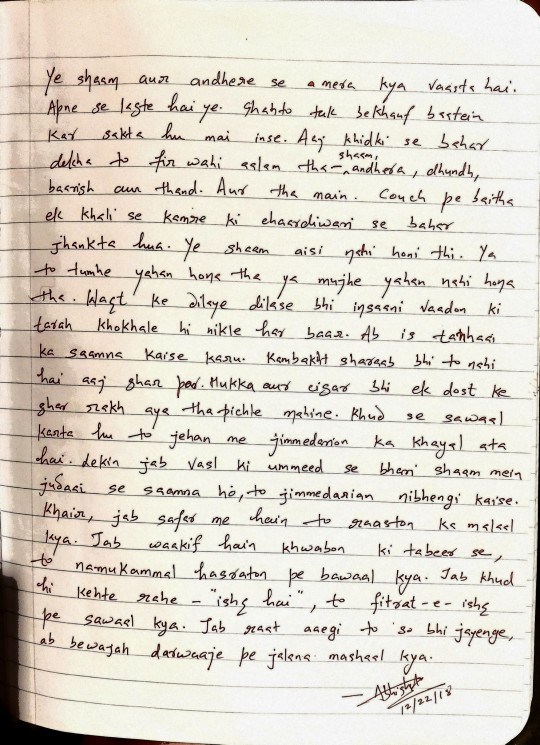 Ye shaam aur andhere se a mera kya vaasta hai.
Apne se lagte hai ye. Ghanto tak bekhauf baatein
kar sakta hu mai inse. Aaj khidki se bahar
dekha to fir wahi aalam tha - shaam, andhera, dhundh,
baarish aur thand. Aur tha main. Couch pe baitha
ek khali se kamre ki chaardiwari se bahar
jhankta hua. Ye shaam aisi nahi honi thi. Ya
to tumhe yahan hona tha ya mujhe yahan nahi hona
tha. Waqt ke dilaye dilase bhi insaani vaadon ki
tarah khokhale hi nikle har baar. Ab is tanhaai
ka saamna kaise karu. Kambakht sharaab bhi to nahi
hai aaj ghar par. Hukka aur cigar bhi ek dost ke
ghar rakh aya tha pichle mahine. Khud se sawaal
karta hu to jehan me jimmedarion ka khayal ata
hai. Lekin jab vasl ki ummeed se bhari shaam mein
judaai se saamna ho, to jimmedarian nibhengi kaise.
Khair, jab safar me hain to raaston ka malaal
kya. Jab waakif hain khwabon ki tabeer se,
to namukammal hasraton pe bawaal kya. Jab khud
hi kehte rahe - "ishq hai", to fitrat-e-ishq
pe sawaal kya. Jab raat aaegi to so bhi jayenge,
ab bewajah darwaaje pe jalana mashaal kya.
12/22/18